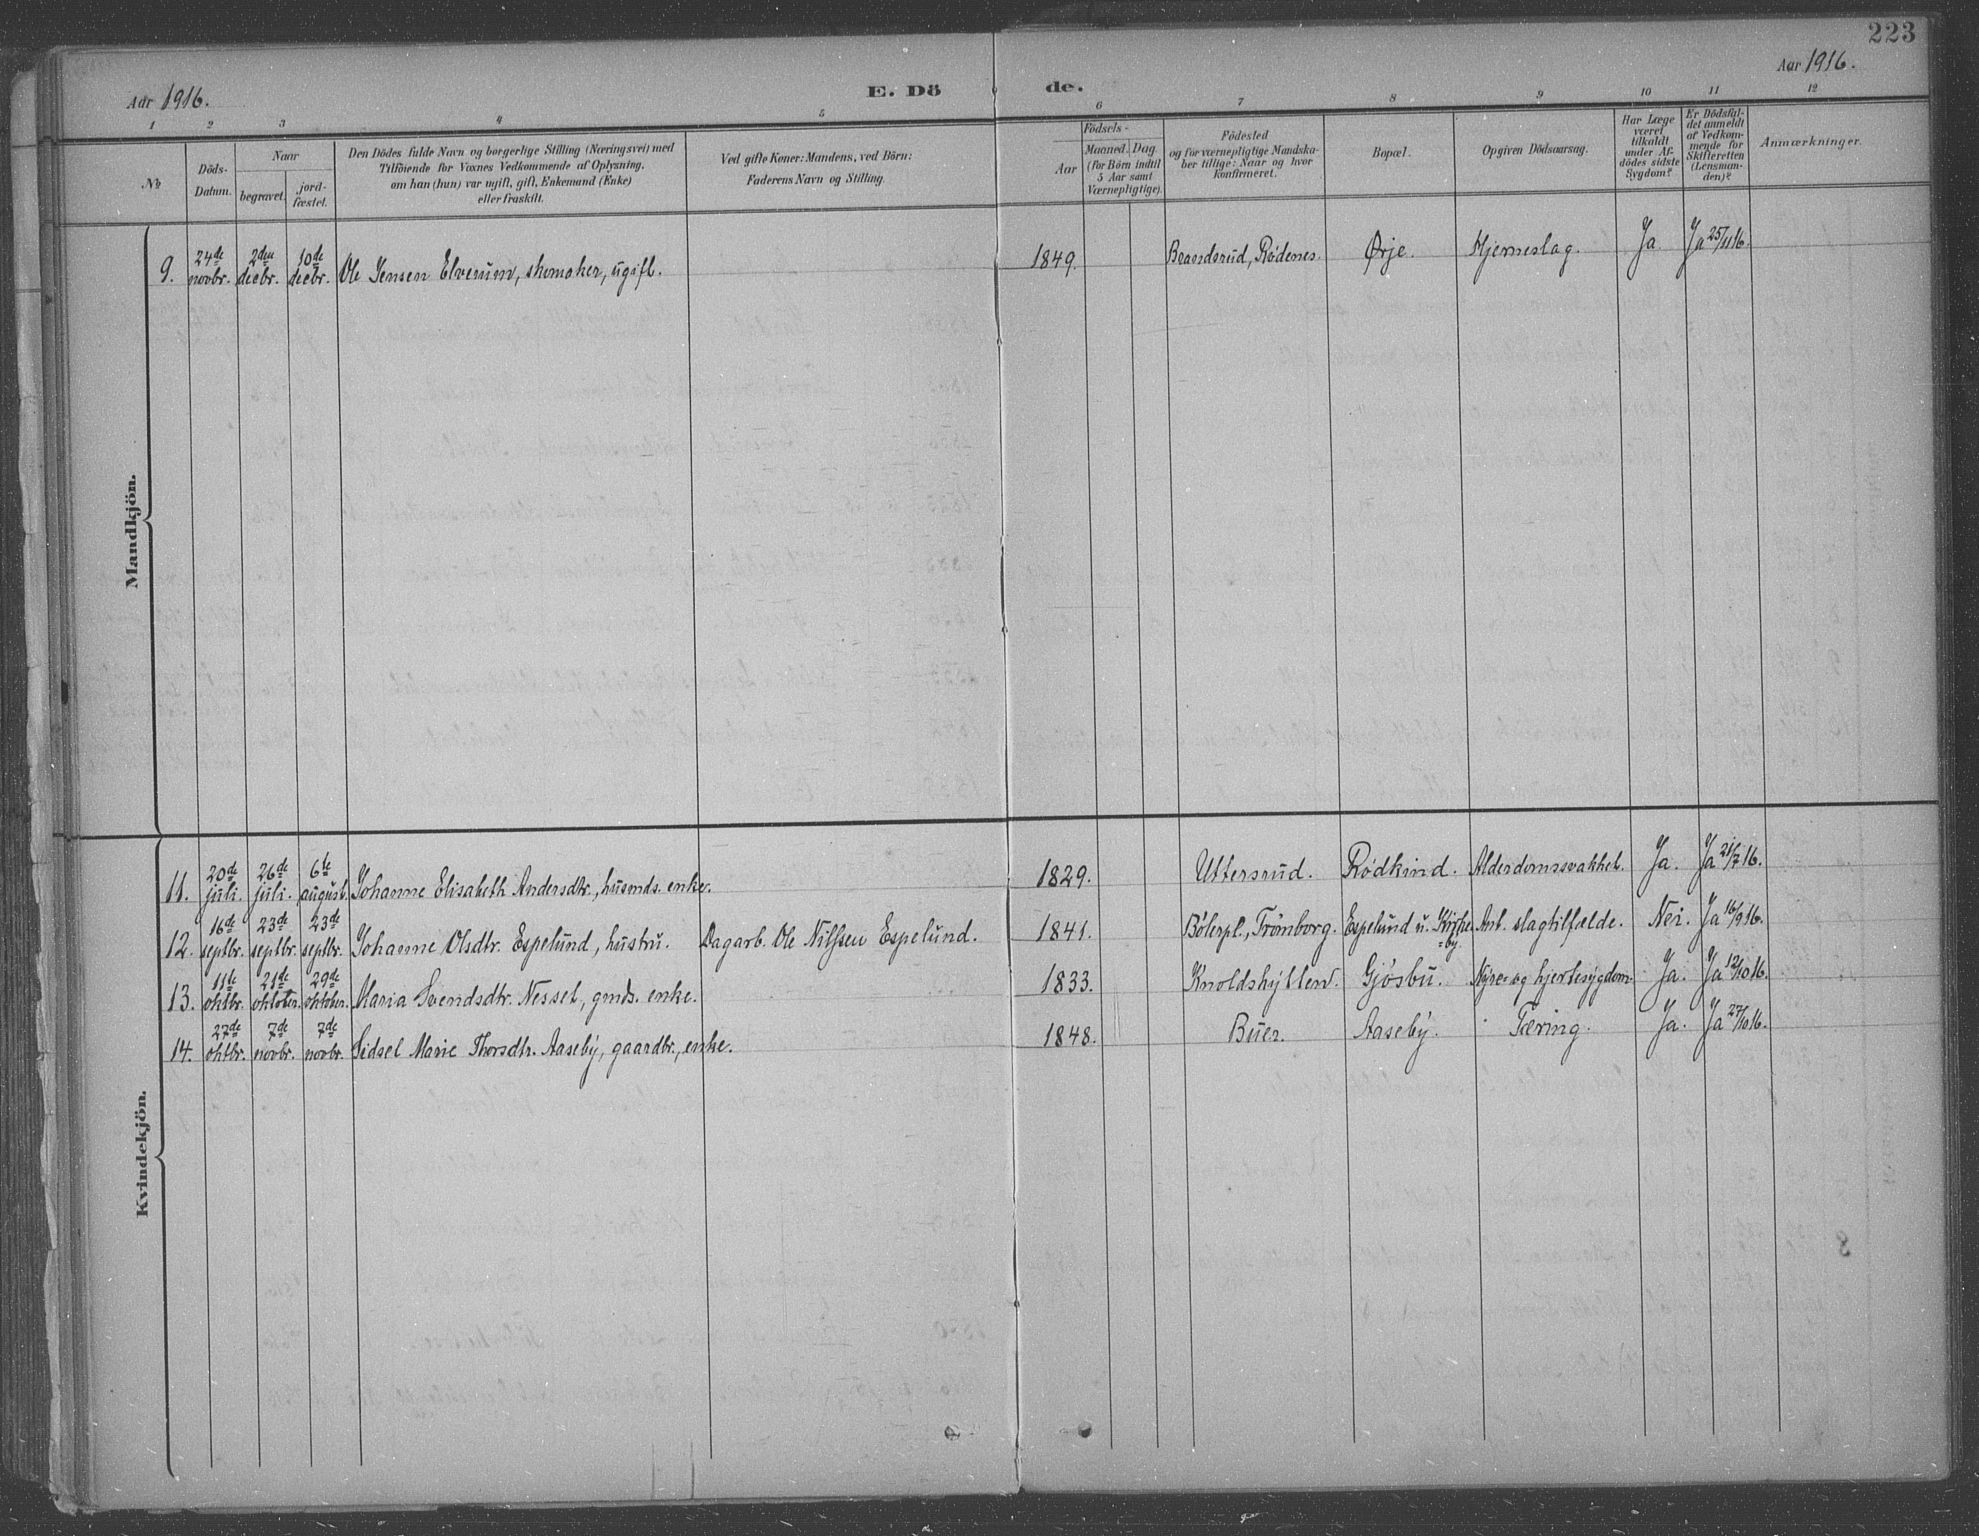 223
Aar 1916.
E. Dö
de.
Aar 1916.
1 2 3 4 5 6 7 8 9 10 11 12
No
Döds-
Datum.
Naar
begravet.
jord-
fæstet.
Den Dödes fulde Navn og borgerlige Stilling (Næringsvei) med
Tilföiende for Voxnes Vedkommende af Oplysning,
om han (hun) var ugift, gift, Enkemand (Enke)
eller fraskilt.
Ved gifte Koner: Mandens, ved Börn:
Faderens Navn og Stilling.
Födsels-
Aar
Maaned. Dag.
(for Börn indtil
5 Aar samt
Værnepligtige).
Födested
og for værnepligtige Mandska-
ber tillige: Naar og hvor
konfirmeret.
Bopæl.
Opgiven Dödsaarsag.
Har Læge
været
tilkaldt
under Af-
dödes sidste
Sygdom?
Er Dödsfal-
det anmeldt
af Vedkom-
mende for
Skifteretten
(Lensman-
den)?
Anmærkninger.
Mandkjön.
9. 24de novbr. 2den decbr. 10de decbr. Ole Jensen Elverum, skomaker, ugift. 1849. Braandsrud, Rödenes. Ørje. Hjerneslag. Ja Ja 25/11 16.
Kvindekjön.
11. 20de juli. 26de juli. 6te august. Johanne Elisabeth Andersdtr., husmds. enke. 1829. Uttersrud. Rödkind. Alderdomssvakhet. Ja. Ja 21/7 16.
12. 16de septbr. 23de septbr. 23de septbr. Johanne Olsdtr. Espelund, hustru. Dagarb. Ole Nilssen Espelund. 1841. Bölerpl., Trömborg. Espelund u. Kirke=by. Ant. slagtilfælde. Nei. Ja 16/9 16.
13. 11te oktbr. 21de oktober. 29de oktober. Maria Svendsdtr. Nesset, gmds. enke. 1833. Knoldshytten. Gjösbu. Nyre- og hjertesygdom. Ja. Ja 12/10 16.
14. 27de oktbr. 7de novbr. 7de novbr. Sidsel Marie Thorsdtr. Aaseby, gaardbr., enke. 1848. Buer. Aaseby. Tæring. Ja. Ja 27/10 16.